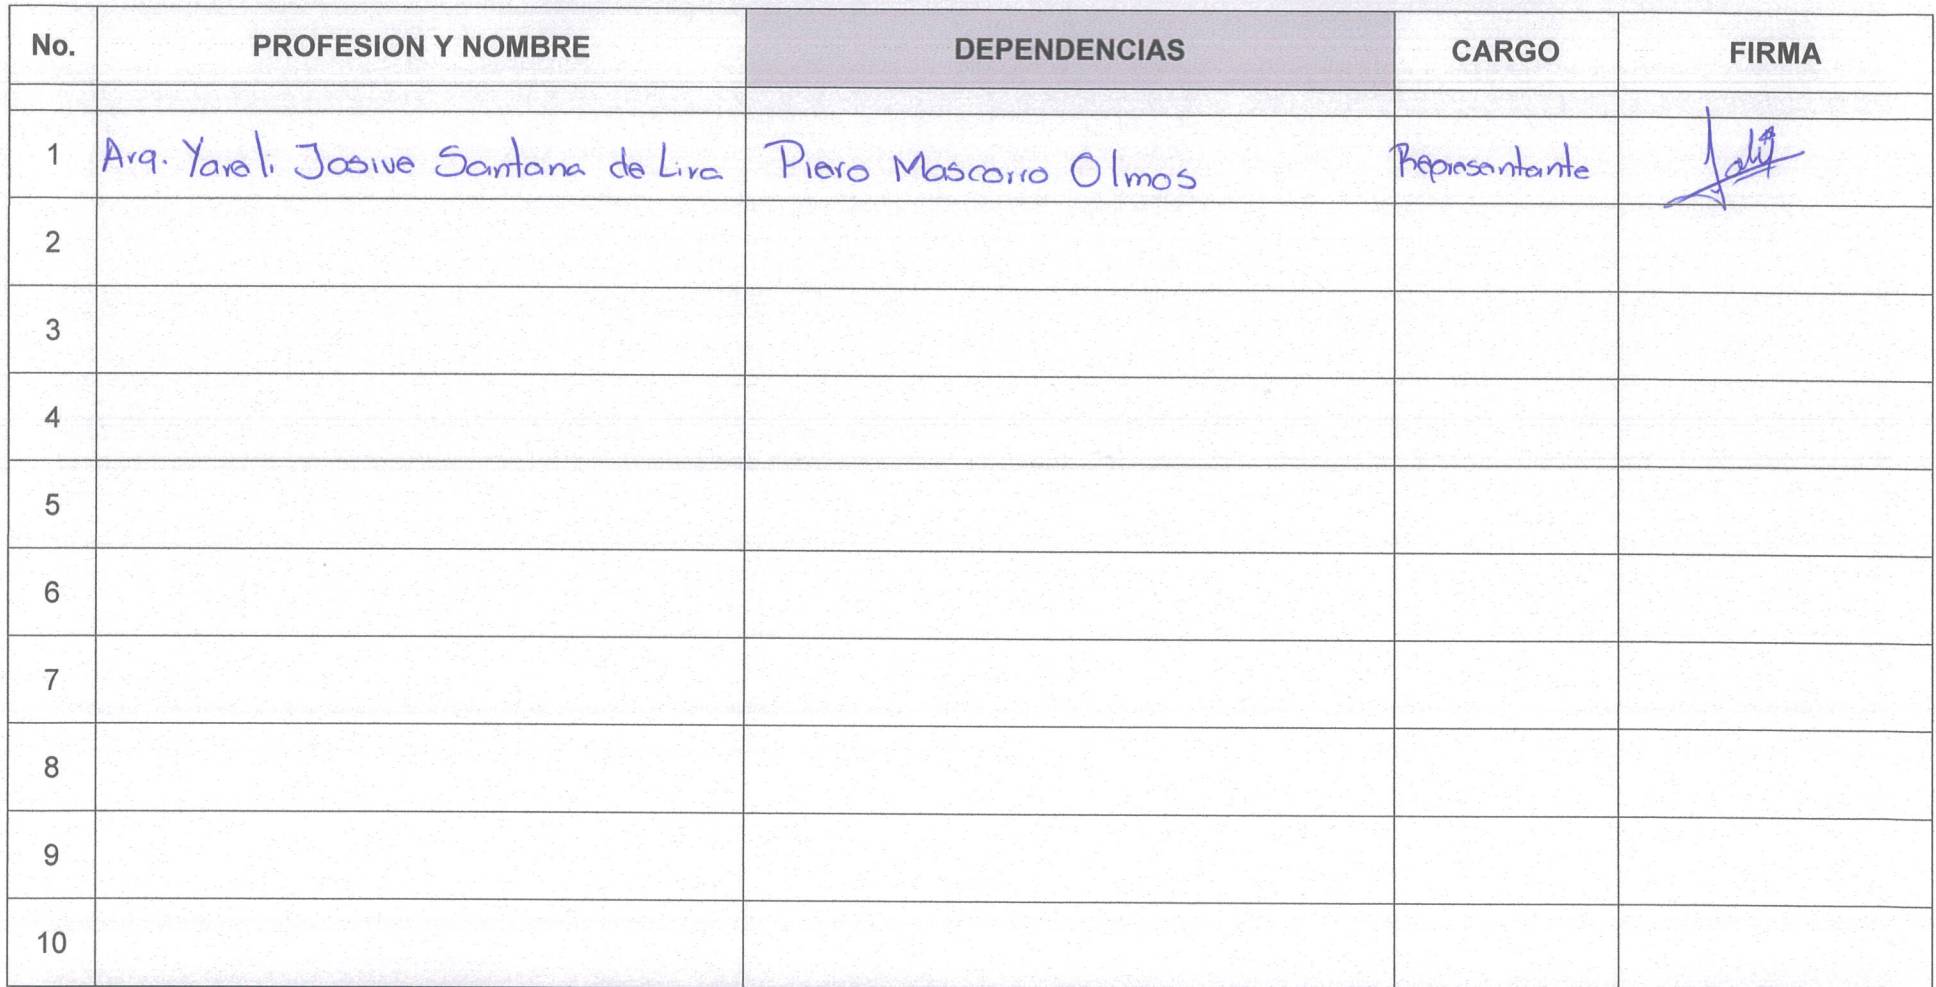 No. PROFESION Y NOMBRE DEPENDENCIAS CARGO FIRMA
1 Arq. Yareli Josive Santana de Lira Piero Mascorro Olmos Representante
2
3
4
5
6
7
8
9
10